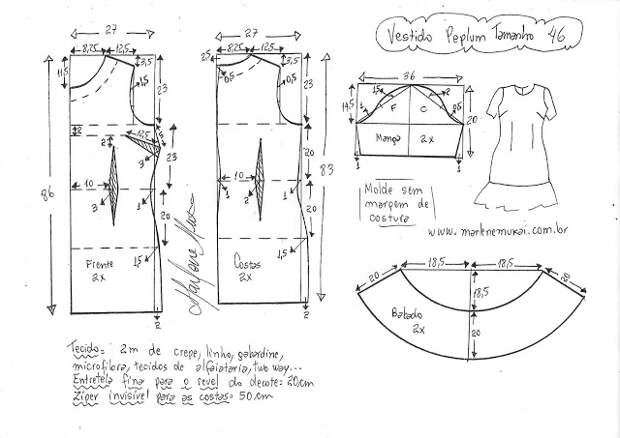 Vestido Peplum Tamanho 46
27
8,25 12,5
3,5
11,5
1,5
23
2
12,5
5
2
3
23
10
3
1
20
86
1,5
Frente
2x
2
27
8,25 12,5
2,5
0,5
3,5
0,5
23
20
10
3
1
1
20
83
1,5
Costas
2x
2
36
14,5
1,5
2
F C
1
0,5
20
Manga 2x
1 1
Molde sem
margem de
costura
www.marlenemukai.com.br
18,5 18,5
20 20
18,5
Babado
2x
20
Tecido= 2m de crepe, linho, gabardine,
microfibra, tecidos de alfaiataria, two way...
Entretela fina para o revel do decote: 20cm
Zíper invisível para as costas= 50cm